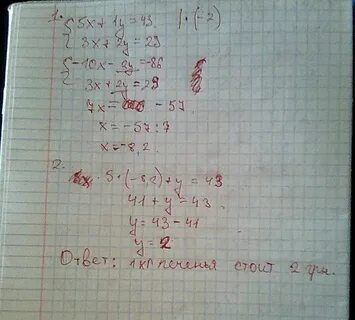 1. { 5x + 1y = 43 | · (-2)
{ 3x + 2y = 29
{ -10x - 2y = -86
3x + 2y = 29
7x = - 57
x = - 57 : 7
x = -8,2
2. 5 · (-8,2) + y = 43
41 + y = 43
y = 43 - 41
y = 2
Ответ: 1 кг печенья стоит 2 грн.